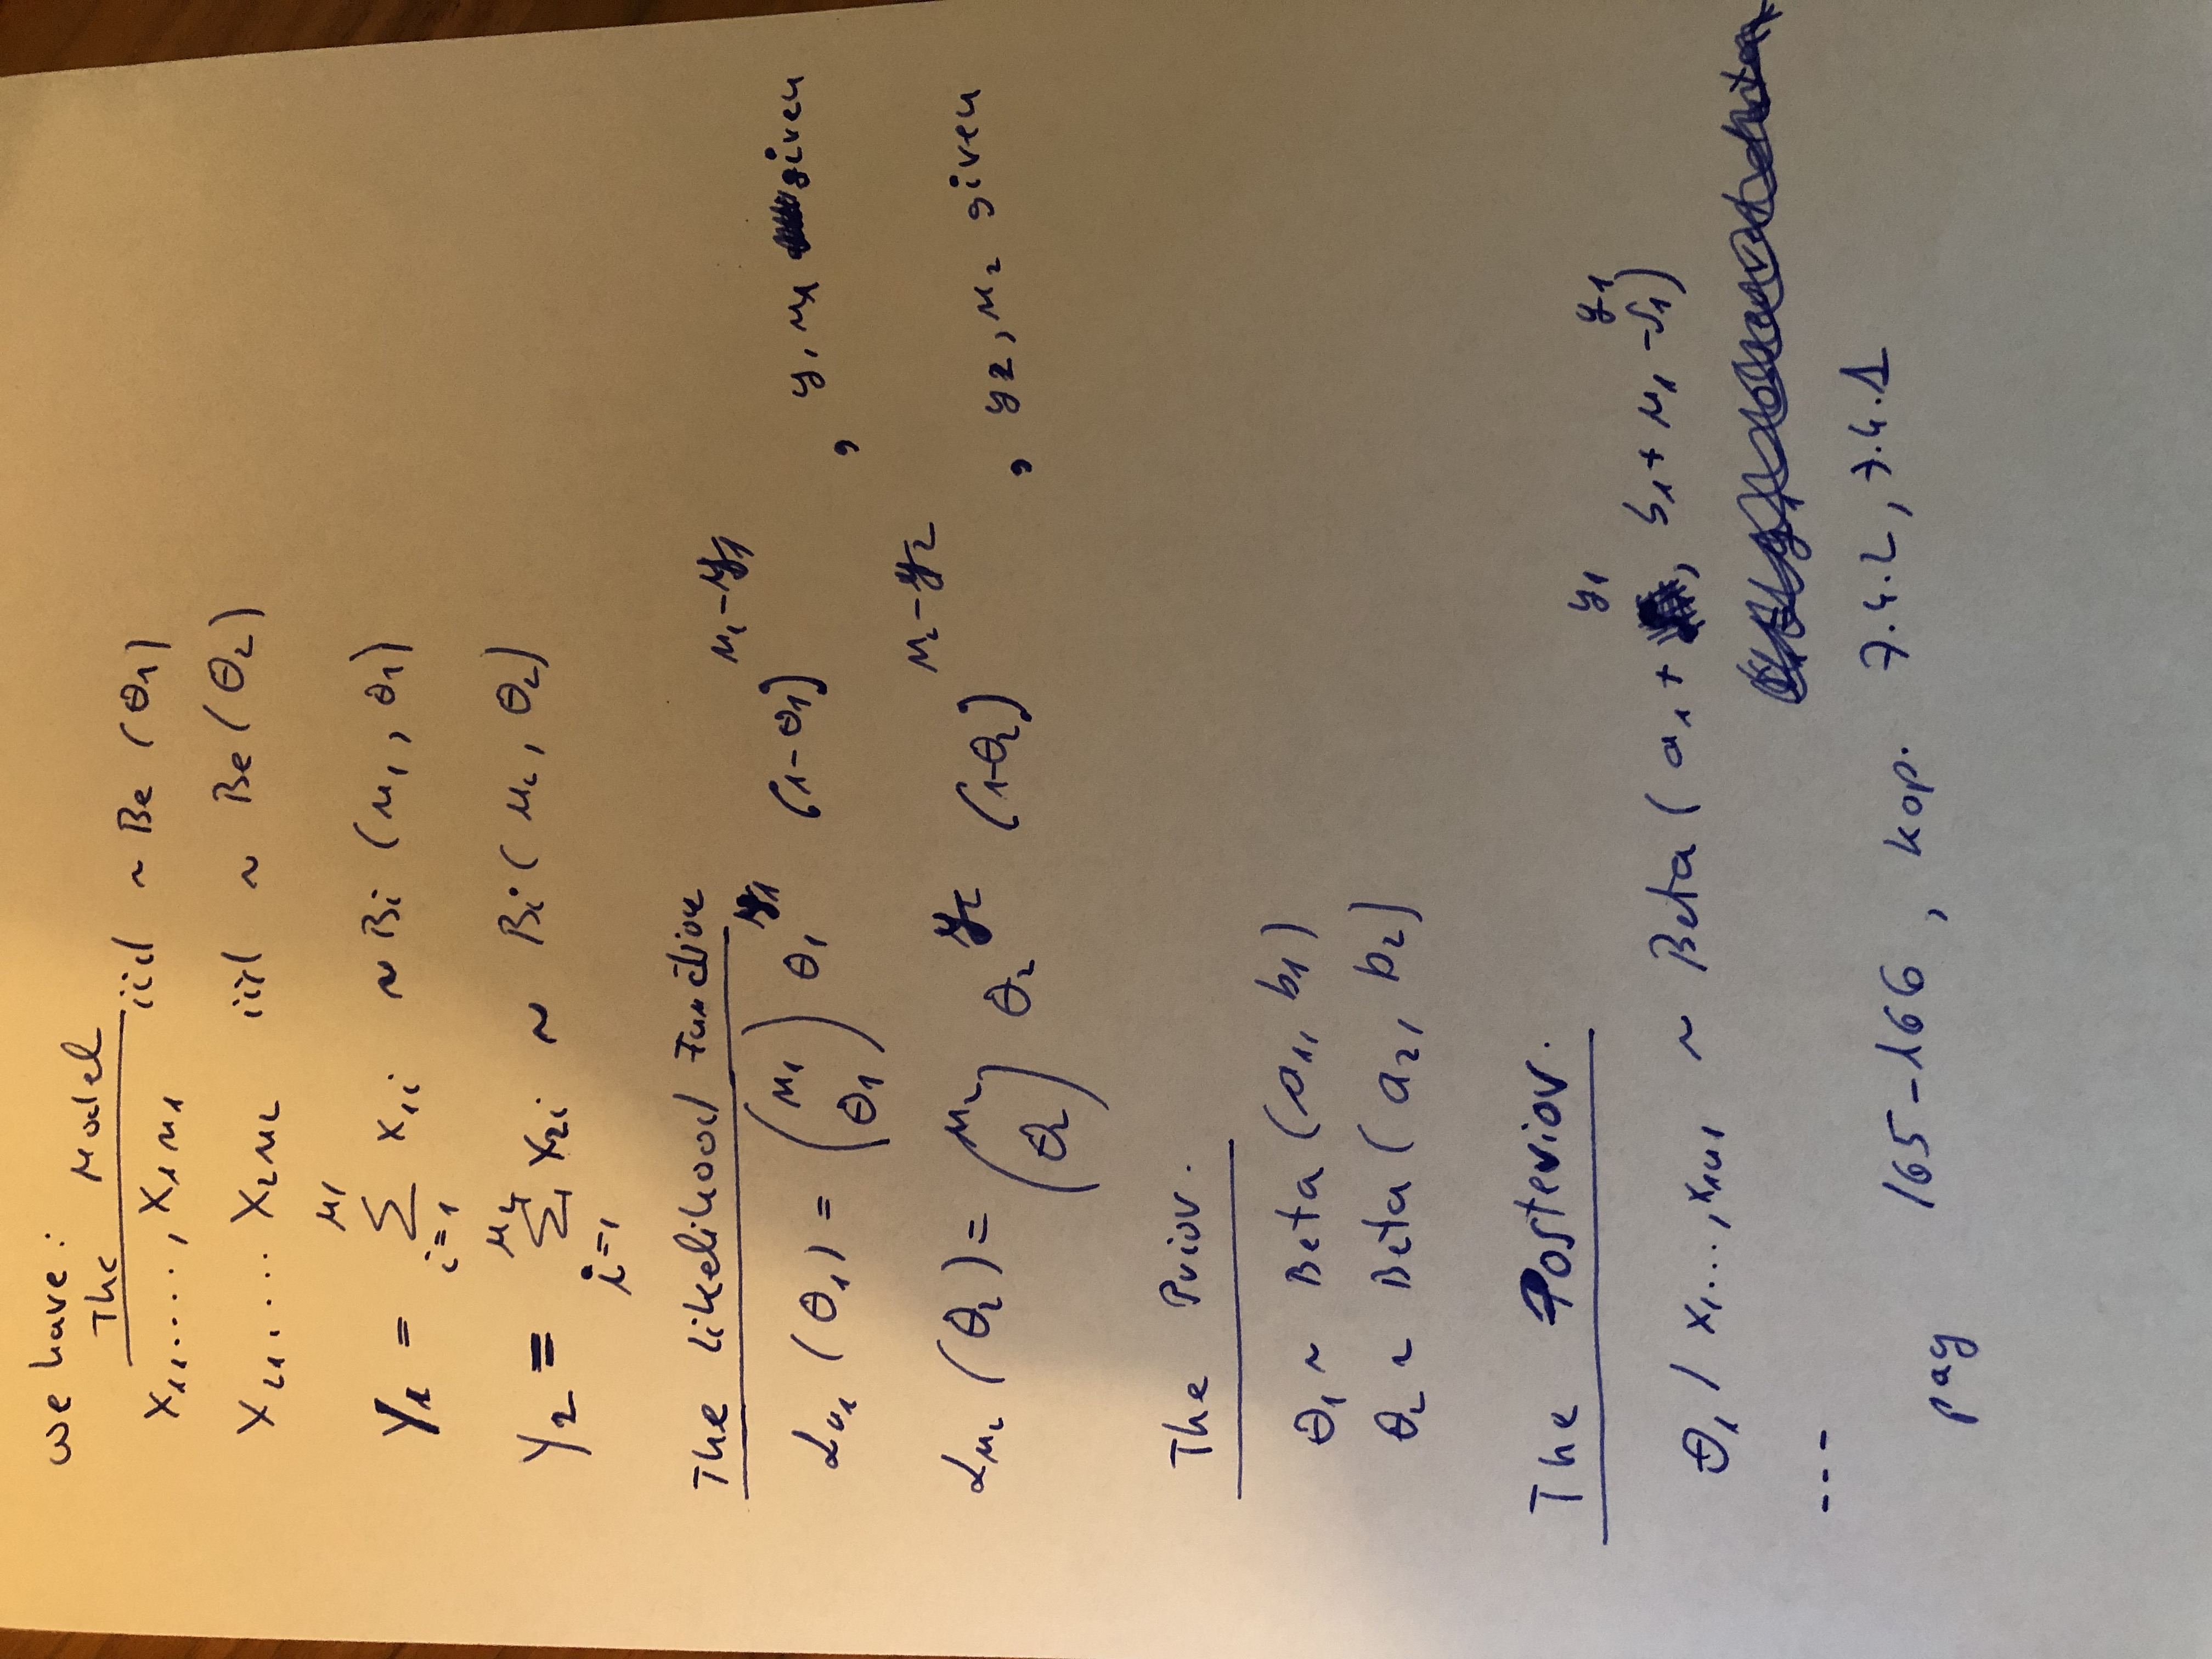 we have:
The Model
X₁₁,....,X₁n₁ iid ~ Be (θ₁)
X₂₁,.... X₂n₂ iid ~ Be (θ₂)
Y₁ = ∑_{i=1}^{n₁} X₁i ~ Bi (n₁, θ₁)
Y₂ = ∑_{i=1}^{n₂} X₂i ~ Bi (n₂, θ₂)
The Likelihood Function
L_{n₁} (θ₁) = (n₁ θ₁) θ₁^{y₁} (1-θ₁)^{n₁-y₁} , y₁ n₁ given
L_{n₂} (θ₂) = (n₂ θ₂) θ₂^{y₂} (1-θ₂)^{n₂-y₂} , y₂, n₂ given
The Prior.
θ₁ ~ Beta (a₁, b₁)
θ₂ ~ Beta (a₂, b₂)
The Posterior.
y₁ y₁
θ₁ / x₁...,x₁n₁ ~ Beta (a₁ + , b₁ + n₁ - s₁)
---
pag 165-166, kap. 7.4.2, 7.4.1